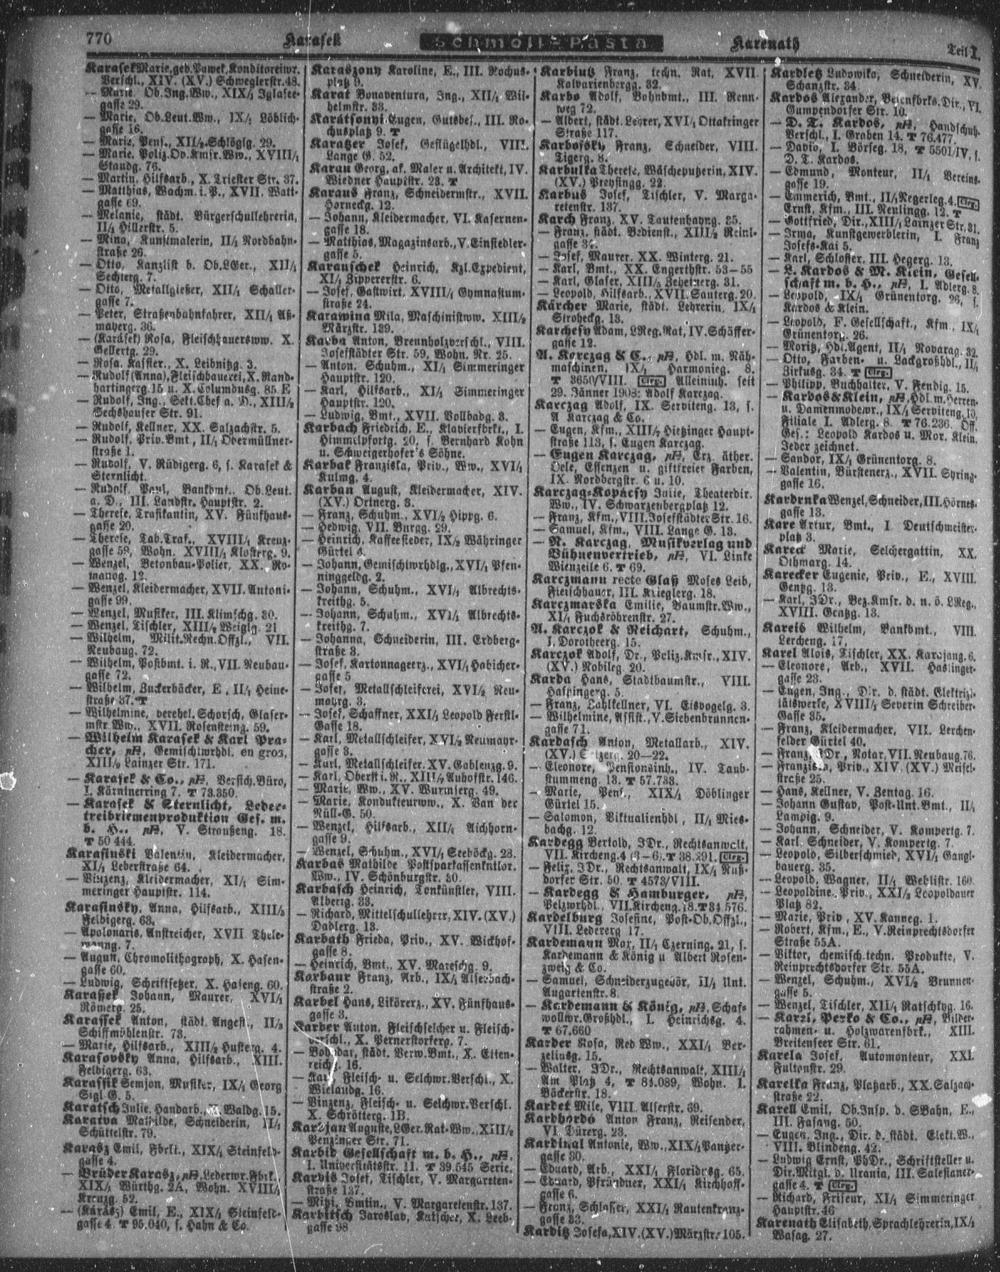 770 Karasek Schmoll-Pasta Karenath Teil I.
Karasek Marie, geb. Pawek, Konditoreiwr.
Verschl., XIV. (XV.) Schweglerstr. 48.
— Marie, Ob. Ing. Ww., XIX/3 Iglasee-
gasse 29.
— Marie, Ob. Leut. Ww., IX/4 Löblich-
gasse 16.
— Marie, Pens., XII/2 Schlöglg. 29.
— Marie, Poliz. Ob. Kmsr. Ww., XVIII/1
Staudg. 76.
— Martin, Hilfsarb., X. Triester Str. 37.
— Matthias, Wachm. i. P., XVII. Watt-
gasse 69.
— Melanie, städt. Bürgerschullehrerin,
II/2 Hillerstr. 5.
— Mina, Kunstmalerin, II/2 Nordbahn-
straße 26.
— Otto, Kanzlist b. Ob. LGer., XII/1
Sechterg. 7.
— Otto, Metallgießer, XII/4 Schaller-
gasse 7.
— Peter, Straßenbahnfahrer, XII/2 Aß-
mayerg. 36.
— (Karásek) Rosa, Fleischhauersww. X.
Gellertg. 29.
— Rosa, Kassier., X. Leibnitzg. 3.
— Rudolf (Anna), Fleischhauerei, X. Rand-
hartingerg. 15 u. X. Columbusg. 85. E
— Rudolf, Ing., Sekt. Chef a. D., XIII/2
Hechshauser Str. 91.
— Rudolf, Kellner, XX. Salzachstr. 5.
— Rudolf, Priv. Bmt., II/2 Obermüllner-
straße 1.
— Rudolf, V. Rüdigerg. 6, s. Karasek &
Sternlicht.
— Rudolf Paul, Bankbmt., Ob. Leut.
a. D., III. Landstr. Hauptstr. 2.
— Therese, Trafikantin, XV. Fünfhaus-
gasse 20.
— Therese, Tab. Traf., XVIII/1 Kreuz-
gasse 58, Wohn. XVIII/1 Klosterg. 9.
— Wenzel, Betonbau-Polier, XX. Ro-
manog. 12.
— Wenzel, Kleidermacher, XVII. Antoni-
gasse 99.
— Wenzel, Musiker, III. Klimschg. 30.
— Wenzel, Tischler, XIII/2 Weiglg. 21
— Wilhelm, Milit. Rechn. Offzl., VII.
Neubaug. 72.
— Wilhelm, Postbmt. i. R., VII. Neubau-
gasse 72.
— Wilhelm, Zuckerbäcker, E, II/1 Heine-
straße 37. T
— Wilhelmine, verehel. Schorsch, Glaser-
mstr. Ww., XVII. Rosensteing. 59.
— Wilhelm Karasek & Karl Pra-
cher, pH, Gemischtwrhdl. en gros,
XIII/2 Lainzer Str. 171.
— Karasek & Co., pH, Versich. Büro,
I. Kärntnerring 7. T 73.350.
— Karasek & Sternlicht, Leder-
treibriemenproduktion Ges. m.
b. H., pH, V. Straußeng. 18.
T 50 444.
Karasinski Valentin, Kleidermacher,
XI/1 Leberstraße 64.
— Vinzenz, Kleidermacher, XI/1 Sim-
meringer Hauptstr. 114.
Karasinsky, Anna, Hilfsarb., XIII/3
Felbigerg. 63.
— Apolonaris, Anstreicher, XVII Thele-
manng. 7.
— August, Chromolithograph, X. Hasen-
gasse 60.
— Ludwig, Schriftsetzer, X. Haseng. 60.
Karassek Johann, Maurer, XVI/1
Römerg. 25.
Karassek Anton, städt. Angest., II/3
Schiffmühlenstr. 73.
— Marie, Hilfsarb., XIII/3 Husterg. 4.
Karasovsky Anna, Hilfsarb., XIII.
Felbigerg. 63.
Karassik Semjon, Musiker, IX/4 Georg
Sigl G. 5.
Karatsch Julie, Handarb., X. Waldg. 15.
Karatva Mathilde, Schneiderin, II/1
Schüttelstr. 79.
Karasz Emil, Fbrkt., XIX/4 Steinfeld-
gasse 4.
— Brüder Karasz, pH, Lederwr. Fbrk.,
XIX/4 Würthg. 2A, Wohn. XVIII/1
Kreuzg. 52.
— (Kárász) Emil, E., XIX/4 Steinfeld-
gasse 4. T 95.040, s. Hahn & Co.
Karaszony Karoline, E., III. Rochus-
platz 9.
Karat Bonaventura, Ing., XII/2 Wil-
helmstr. 33.
Karátsonyi Eugen, Gutsbes., III. Ro-
chusplatz 9. T
Karatzer Josef, Geflügelhdl., VIII.
Lange G. 52.
Karau Georg, ak. Maler u. Architekt, IV.
Wiedner Hauptstr. 23. T
Karaus Franz, Schneidermstr., XVII.
Hornecks. 12.
— Johann, Kleidermacher, VI. Kasernen-
gasse 18.
— Matthias, Magazinsarb., V. Einsiedler-
gasse 5.
Karauschek Heinrich, Kzl. Expedient,
XI/1 Zippererstr. 6.
— Josef, Gastwirt, XVIII/1 Gymnasium-
straße 24.
Karawina Mila, Maschinistww. XIII/2
Märzstr. 139.
Karba Anton, Brennholzverschl., VIII.
Josefstädter Str. 59, Wohn. Nr. 25.
— Anton, Schuhm., XI/1 Simmeringer
Hauptstr. 120.
— Karl, Hilfsarb., XI/1 Simmeringer
Hauptstr. 120.
— Ludwig, Bmt., XVII. Vollbadg. 3.
Karbach Friedrich, E., Klavierfbrkt., I.
Himmelpfortg. 20, s. Bernhard Kohn
u. Schweigerhofer's Söhne.
Karbak Franziska, Priv., Ww., XVI/1
Kulmg. 4.
Karban August, Kleidermacher, XIV.
(XV.) Ortnerg. 3.
— Franz, Schuhm., XVI/2 Hippg. 6.
— Hedwig, VII. Burgg. 29.
— Heinrich, Kaffeesieder, IX/2 Währinger
Gürtel 6.
— Johann, Gemischtwrhdlg., XVI/1 Pfen-
ninggeldg. 2.
— Johann, Schuhm., XVI/1 Albrechts-
kreithg. 5.
— Johann, Schuhm., XVI/1 Albrechts-
kreithg. 7.
— Johanna, Schneiderin, III. Erdberg-
straße 3.
— Josef, Kartonnageerz., XVI/1 Habicher-
gasse 5
— Josef, Metallschleiferei, XVI/2 Neu-
mayrg. 3.
— Josef, Schaffner, XXI/4 Leopold Ferstl-
Gasse 18.
— Karl, Metallschleifer, XVI/2 Neumayr-
gasse 3.
— Karl, Metallschleifer, XV. Goblenzg. 9.
— Karl, Oberst i. R., XIII/4 Auhofstr. 146.
— Marie, Ww., XV. Wurmserg. 49.
— Marie, Kondukteurww., X. Van der
Nüll-G. 50.
— Wenzel, Hilfsarb., XII/4 Aichhorn-
gasse 9.
— Wenzel, Schuhm., XVI/1 Seeböckg. 23.
Karbas Mathilde Postsparkassenkntlor.
Ww., IV. Schönburgstr. 30.
Karbasch Heinrich, Tonkünstler, VIII.
Alberig. 33.
— Richard, Mittelschullehrer, XIV. (XV.)
Dadlerg. 13.
Karbath Frieda, Priv., XV. Wickhof-
gasse 8.
— Heinrich, Bmt., XV. Mareschg. 9.
Karbaur Franz, Arb., IX/4 Alserbach-
straße 2.
Karbel Hans, Likörerz., XV. Fünfhaus-
gasse 3.
Karber Anton, Fleischselcher u. Fleisch-
verschl., X. Pernerstorferg. 7.
— Bohdar, städt. Verw. Bmt., X. Etten-
reichg. 16.
— Karl, Fleisch- u. Selchwr. Verschl., X.
Wielandg. 16.
— Vinzenz, Fleisch- u. Selchwr. Verschl.
X. Schrötterg. 1B.
Karbjan Auguste, LGer. Rat-Ww., XIII/2
Penzinger Str. 71.
Karbid Gesellschaft m. b. H., pH,
I. Universitätsstr. 11. T 39.545 Serie.
Karbis Josef, Tischler, V. Margareten-
straße 137.
— Mizi, Bmtin., V. Margaretenstr. 137.
Karbitsch Jaroslav, Kutscher, X. Leeb-
gasse 98
Karbiutz Franz, techn. Rat, XVII.
Kalvarienbergg. 32.
Karbo Adolf, Bahnbmt., III. Renn-
weg 72.
— Albert, städt. Lehrer, XVI/1 Ottakringer
Straße 117.
Karbofsky Franz, Schneider, VIII.
Tigerg. 8.
Karbulka Therese, Wäscheputzerin, XIV.
(XV.) Preysingg. 22.
Karbus Josef, Tischler, V. Marga-
retenstr. 137.
Karch Franz, XV. Tautenhayng. 25.
— Franz, städt. Bedienst., XIII/2 Reinl-
gasse 37.
— Josef, Maurer, XX. Winterg. 21.
— Karl, Bmt., XX. Engerthstr. 53—55
— Karl, Glaser, XIII/3 Zehetnerg. 31.
— Leopold, Hilfsarb., XVII. Sauterg. 20.
Kärcher Marie, städt. Lehrerin, IX/1
Strohecks. 13.
Karchesy Adam, LReg. Rat, IV. Schäffer-
gasse 12.
A. Korczag & C., pH, Hdl. m. Näh-
maschinen, IX/4 Harmonieg. 8.
T 3650/VIII. Clrg. Alleininh. seit
29. Jänner 1908: Adolf Karczag.
Karczag Adolf, IX. Serviteng. 13, s.
A. Karczag & Co.
— Eugen, Kfm., XIII/1 Hietzinger Haupt-
straße 113, s. Eugen Karczag.
— Eugen Karczag, pH, Erz. äther.
Oele, Essenzen u. giftfreier Farben,
IX. Nordbergstr. 6 u. 10.
Karczag-Kopácsy Julie, Theaterdir.
Ww., IV. Schwarzenbergplatz 12.
— Franz, Kfm., VIII. Josefstädter Str. 16.
— Samuel, Kfm., VIII. Lange G. 13.
— N. Karczag, Musikverlag und
Bühnenvertrieb, pH, VI. Linke
Wienzeile 6. T 69.
Karczmann recte Glaß Moses Leib,
Fleischhauer, III. Krieglerg. 18.
Karczmarska Emilie, Baumstr. Ww.,
XI/1 Fuchsröhrenstr. 27.
A. Karczok & Reichart, Schuhm.,
I. Dorotheerg. 15.
Karczok Adolf, Dr., Poliz. Kmsr., XIV.
(XV.) Nobileg. 20.
Karda Hans, Stadtbaumstr., VIII.
Haspingerg. 5.
— Franz, Zahlkellner, VI. Eisvogelg. 3.
— Wilhelmine, Assist., V. Siebenbrunnen-
gasse 71.
Kardasch Anton, Metallarb., XIV.
(XV.) Selzerg. 20—22.
— Eleonore, Pensionsinh., IV. Taub-
stummeng. 13. T 57.733.
— Marie, Pens., XIX/1 Döblinger
Gürtel 15.
— Salomon, Viktualienhdl., II/2 Mies-
bachg. 12.
Kardegg Bertold, JDr., Rechtsanwalt,
VII. Kircheng. 4 (3—6). T 38.291. Clrg.
— Felix, JDr., Rechtsanwalt, IX/2 Nuß-
dorfer Str. 50. T 4573/VIII.
— Kardegg & Hamburger, pH,
Pelzwrhdl., VII. Kircheng. 8. T 34.576.
Kardelburg Josefine, Post-Ob. Offzl.,
VIII. Ledererg. 17.
Kardemann Max, II/1 Czerning. 21, s.
Kardemann & König u. Albert Rosen-
zweig & Co.
— Samuel, Schneiderzugehör, II/1 Unt.
Augartenstr. 8.
— Kardemann & König, pH, Schaf-
wollwr. Großhdl., I. Heinrichsg. 4.
T 67.660
Karder Rosa, Red. Ww., XXI/1 Ber-
zeliusg. 15.
— Walter, JDr., Rechtsanwalt, XIII/1
Am Platz 4, T 84.089, Wohn. I.
Bäckerstr. 18.
Kardet Mile, VIII. Alserstr. 69.
Kardhordó Anton Franz, Reisender,
VI. Dürerg. 23.
Kardinal Antonie, Ww., XIX/4 Panzer-
gasse 30.
— Eduard, Arb., XXI/1 Floridsg. 65.
— Eduard, Pfründner, XXI/1 Kirchhoff-
gasse 6.
— Franz, Schlosser, XXI/4 Rautenkranz-
gasse 33.
Karditz Josefa, XIV. (XV.) Märzstr. 105.
Kardletz Ludowika, Schneiderin, XV.
Schanzstr. 34.
Kardos Alexander, Beleufbrks. Dir., VI.
Gumpendorfer Str. 10.
— D. T. Kardos, pH, Handschuh-
Verschl., I. Graben 14. T 76.477.
— David, I. Börseg. 18, T 5501/IV, s.
D. T. Kardos.
— Edmund, Monteur, II/1 Vereins-
gasse 19.
— Emmerich, Bmt., II/2 Negerleg. 4. Clrg.
— Ernst, Kfm., III. Reulingg. 12. T
— Gottfried, Dir., XIII/1 Lainzer Str. 31.
— Irma, Kunstgewerblerin, I. Franz
Josefs-Kai 5.
— Karl, Schlosser, III. Hegerg. 13.
— L. Kardos & M. Klein, Gesell-
schaft m. b. H., pH, I. Adlerg. 8.
— Leopold, IX/4 Grünentorg. 26, s.
Kardos & Klein.
— Leopold, F. Gesellschaft., Kfm., IX/4
Grünentorg. 26.
— Moritz, Hdl. Agent, II/2 Novarag. 32.
— Otto, Farben- u. Lackgroßhdl., II/2
Zirkusg. 34. T Clrg.
— Philipp, Buchhalter, V. Fendig. 15.
— Kardos & Klein, pH, Hdl. m. Herren-
u. Damenmodewr., IX/4 Serviteng. 13,
Filiale I. Adlerg. 8. T 76.236. Off.
Ges.: Leopold Kardos u. Mor. Klein.
Jeder zeichnet.
— Sandor, IX/4 Grünentorg. 8.
— Valentin, Bürstenerz., XVII. Syring-
gasse 16.
Kardruka Wenzel, Schneider, III. Hörnes-
gasse 13.
Kare Artur, Bmt., I. Deutschmeister-
platz 3.
Kareck Marie, Selchergattin, XX.
Othmarg. 14.
Karecker Eugenie, Priv., E., XVIII.
Gentzg. 13.
— Karl, JDr., Bez. Kmsr. d. n. ö. LReg.,
XVIII. Gentzg. 13.
Kareis Wilhelm, Bankbmt., VIII.
Lercheng. 17.
Karel Alois, Tischler, XX. Karajang. 6.
— Eleonore, Arb., XVII. Haslinger-
gasse 23.
— Eugen, Ing., Dir. d. städt. Elektrizi-
tätswerke, XVIII/2 Severin Schreiber-
Gasse 35.
— Franz, Kleidermacher, VII. Lerchen-
felder Gürtel 40.
— Franz, JDr., Notar, VII. Neubaug. 76.
— Franziska, Priv., XIV. (XV.) Meisel-
straße 25.
— Hans, Kellner, V. Zentag. 16.
— Johann Gustav, Post-Unt. Bmt., II/1
Lampig. 9.
— Johann, Schneider, V. Kompertg. 7.
— Karl, Schneider, V. Kompertg. 7.
— Leopold, Silberschmied, XVI/1 Gangl-
bauerg. 35.
— Leopold, Wagner, II/2 Wehlistr. 160.
— Leopoldine, Priv., XXI/3 Leopoldauer
Platz 82.
— Marie, Priv., XV. Kanneg. 1.
— Robert, Kfm., E., V. Reinprechtsdorfer
Straße 55A.
— Viktor, chemisch.techn. Produkte, V.
Reinprechtsdorfer Str. 55A.
— Wenzel, Schuhm., XVI/2 Brunnen-
gasse 5.
— Wenzel, Tischler, XII/1 Ratschkyg. 16.
— Karzl, Perko & Co., pH, Bilder-
rahmen- u. Holzwarenfbrk., XIII.
Breitenseer Str. 61.
Karela Josef, Automonteur, XXI.
Fultonstr. 29.
Karelka Franz, Platzarb., XX. Salzach-
straße 22.
Karell Emil, Ob. Insp. d. SBahn, E.,
III. Fasang. 50.
— Eugen, Ing., Dir. d. städt. Elekt. W.,
VIII. Blindeng. 42.
— Ludwig Ernst, PhDr., Schriftsteller u.
Dir. Mitgl. d. Urania, III. Salesianer-
gasse 4. T Clrg.
— Richard, Friseur, XI/1 Simmeringer
Hauptstr. 46
Karenath Elisabeth, Sprachlehrerin, IX/1
Wasag. 27.